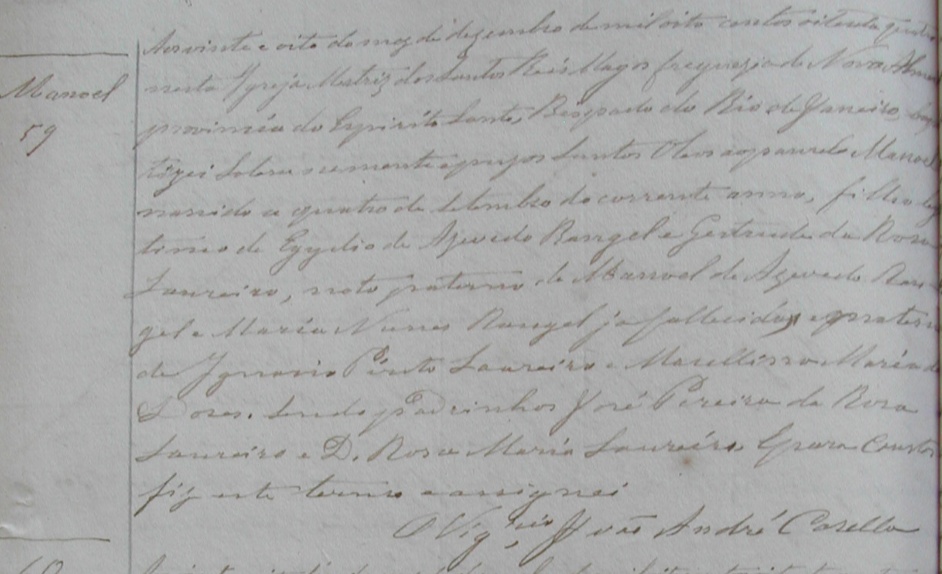 Aos vinte e oito do mez de dezembro de mil oito centos oitenta quatro
Manoel
59
nesta Igreja Matriz dos Santos Reis Magos freguezia de Nova Alm
provincia do Espirito Santo, Bispado do Rio de Janeiro, bap
tizei solemnemente e puz os Santos Oleos ao parvulo Manoel
nascido a quatro de setembro do corrente anno, filho legi
timo de Egydio de Azevedo Rangel e Gertrudes da Rosa
Loureiro, neto paterno de Manoel de Azevedo Ran
gel e Maria Nunes Rangel ja fallecidos, e materno
de Ignacio Pinto Loureiro e Maria
Dores. Sendo padrinhos José Pereira da Rosa
Loureiro e D. Rosa Maria Loureiro. E para constar
fiz este termo e assignei
O Vigº João André Casella